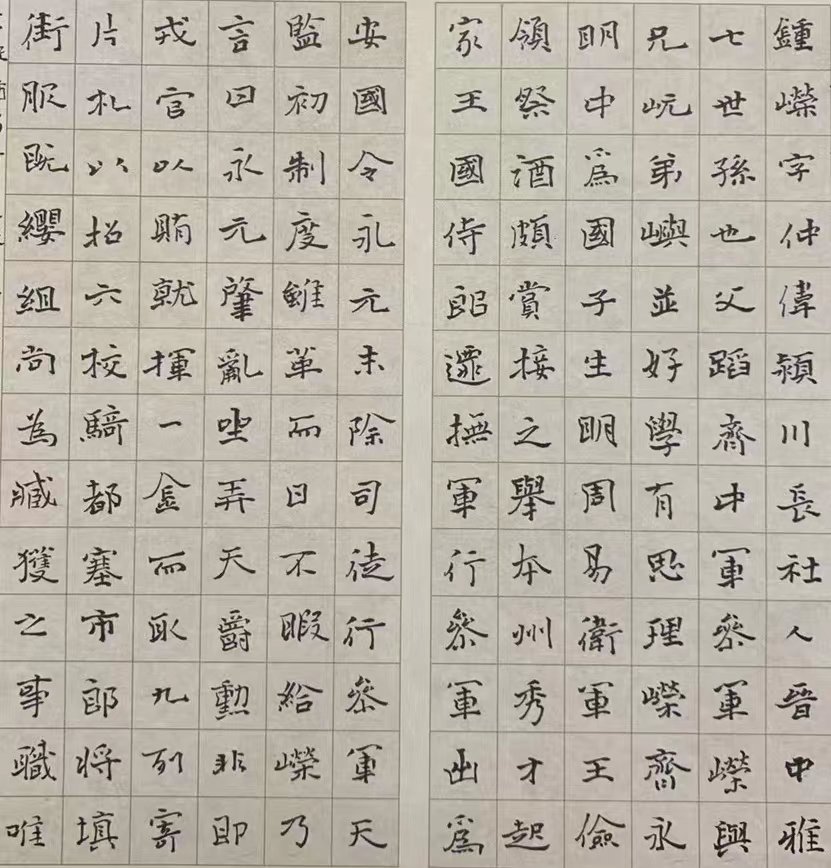 鍾嶸字仲偉潁川長社人晉中雅
七世孫也父蹈齊中軍參軍嶸與
兄岏弟嶼並好學有思理嶸齊永
明中爲國子生明周易衛軍王儉
領祭酒頗賞接之舉本州秀才起
家王國侍郎遷撫軍行參軍出爲
安國令永元末除司徒行參軍天
監初制度雖革而日不暇給嶸乃
言曰永元肇亂坐弄天爵勳非即
戎官以賄就揮一金而取九列寄
片札以招六校騎都塞市郎将填
街服既纓組尚為臧獲之事職唯